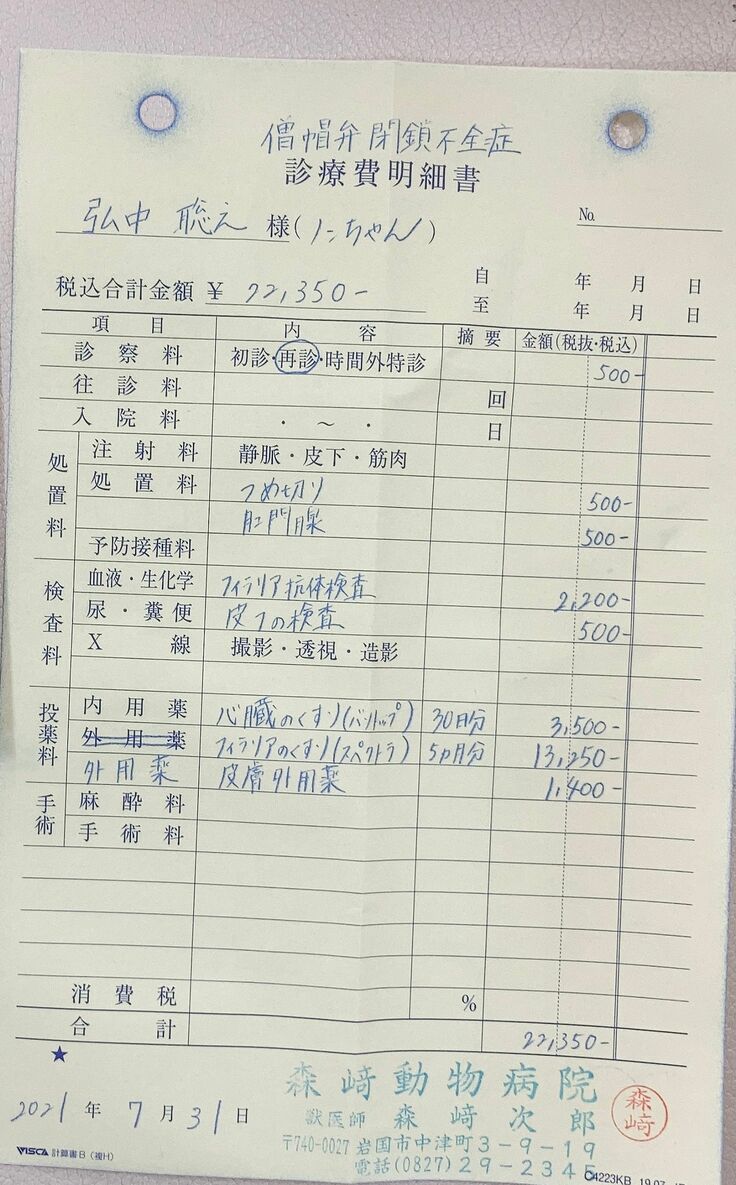 僧帽弁閉鎖不全症
診療費明細書
弘中 聡え 様(ノンちゃん) No.
税込合計金額 ¥ 22,350- 自 年 月 日
至 年 月 日
項目 内容 摘要 金額(税抜・税込)
診察料 初診・再診・時間外特診 500-
往診料 回
入院料 ・ ～ ・ 日
処置料 注射料 静脈・皮下・筋肉
処置料 つめ切り 500-
肛門腺 500-
予防接種料
検査料 血液・生化学 フィラリア抗体検査 2,200-
尿・糞便 皮フの検査 500-
X線 撮影・透視・造影
投薬料 内用薬 心臓のくすり(バソトップ) 30日分 3,500-
外用薬 フィラリアのくすり(スペクトラ) 5ヵ月分 13,250-
外用薬 皮膚外用薬 1,400-
手術 麻酔料
手術料
消費税 %
合計 22,350-
★
2021年7月31日
森﨑動物病院
獣医師 森﨑次郎
森﨑
〒740-0027 岩国市中津町3-9-19
電話(0827)29-2345
VISCA 計算書B(複H)
C4223KB 19.07